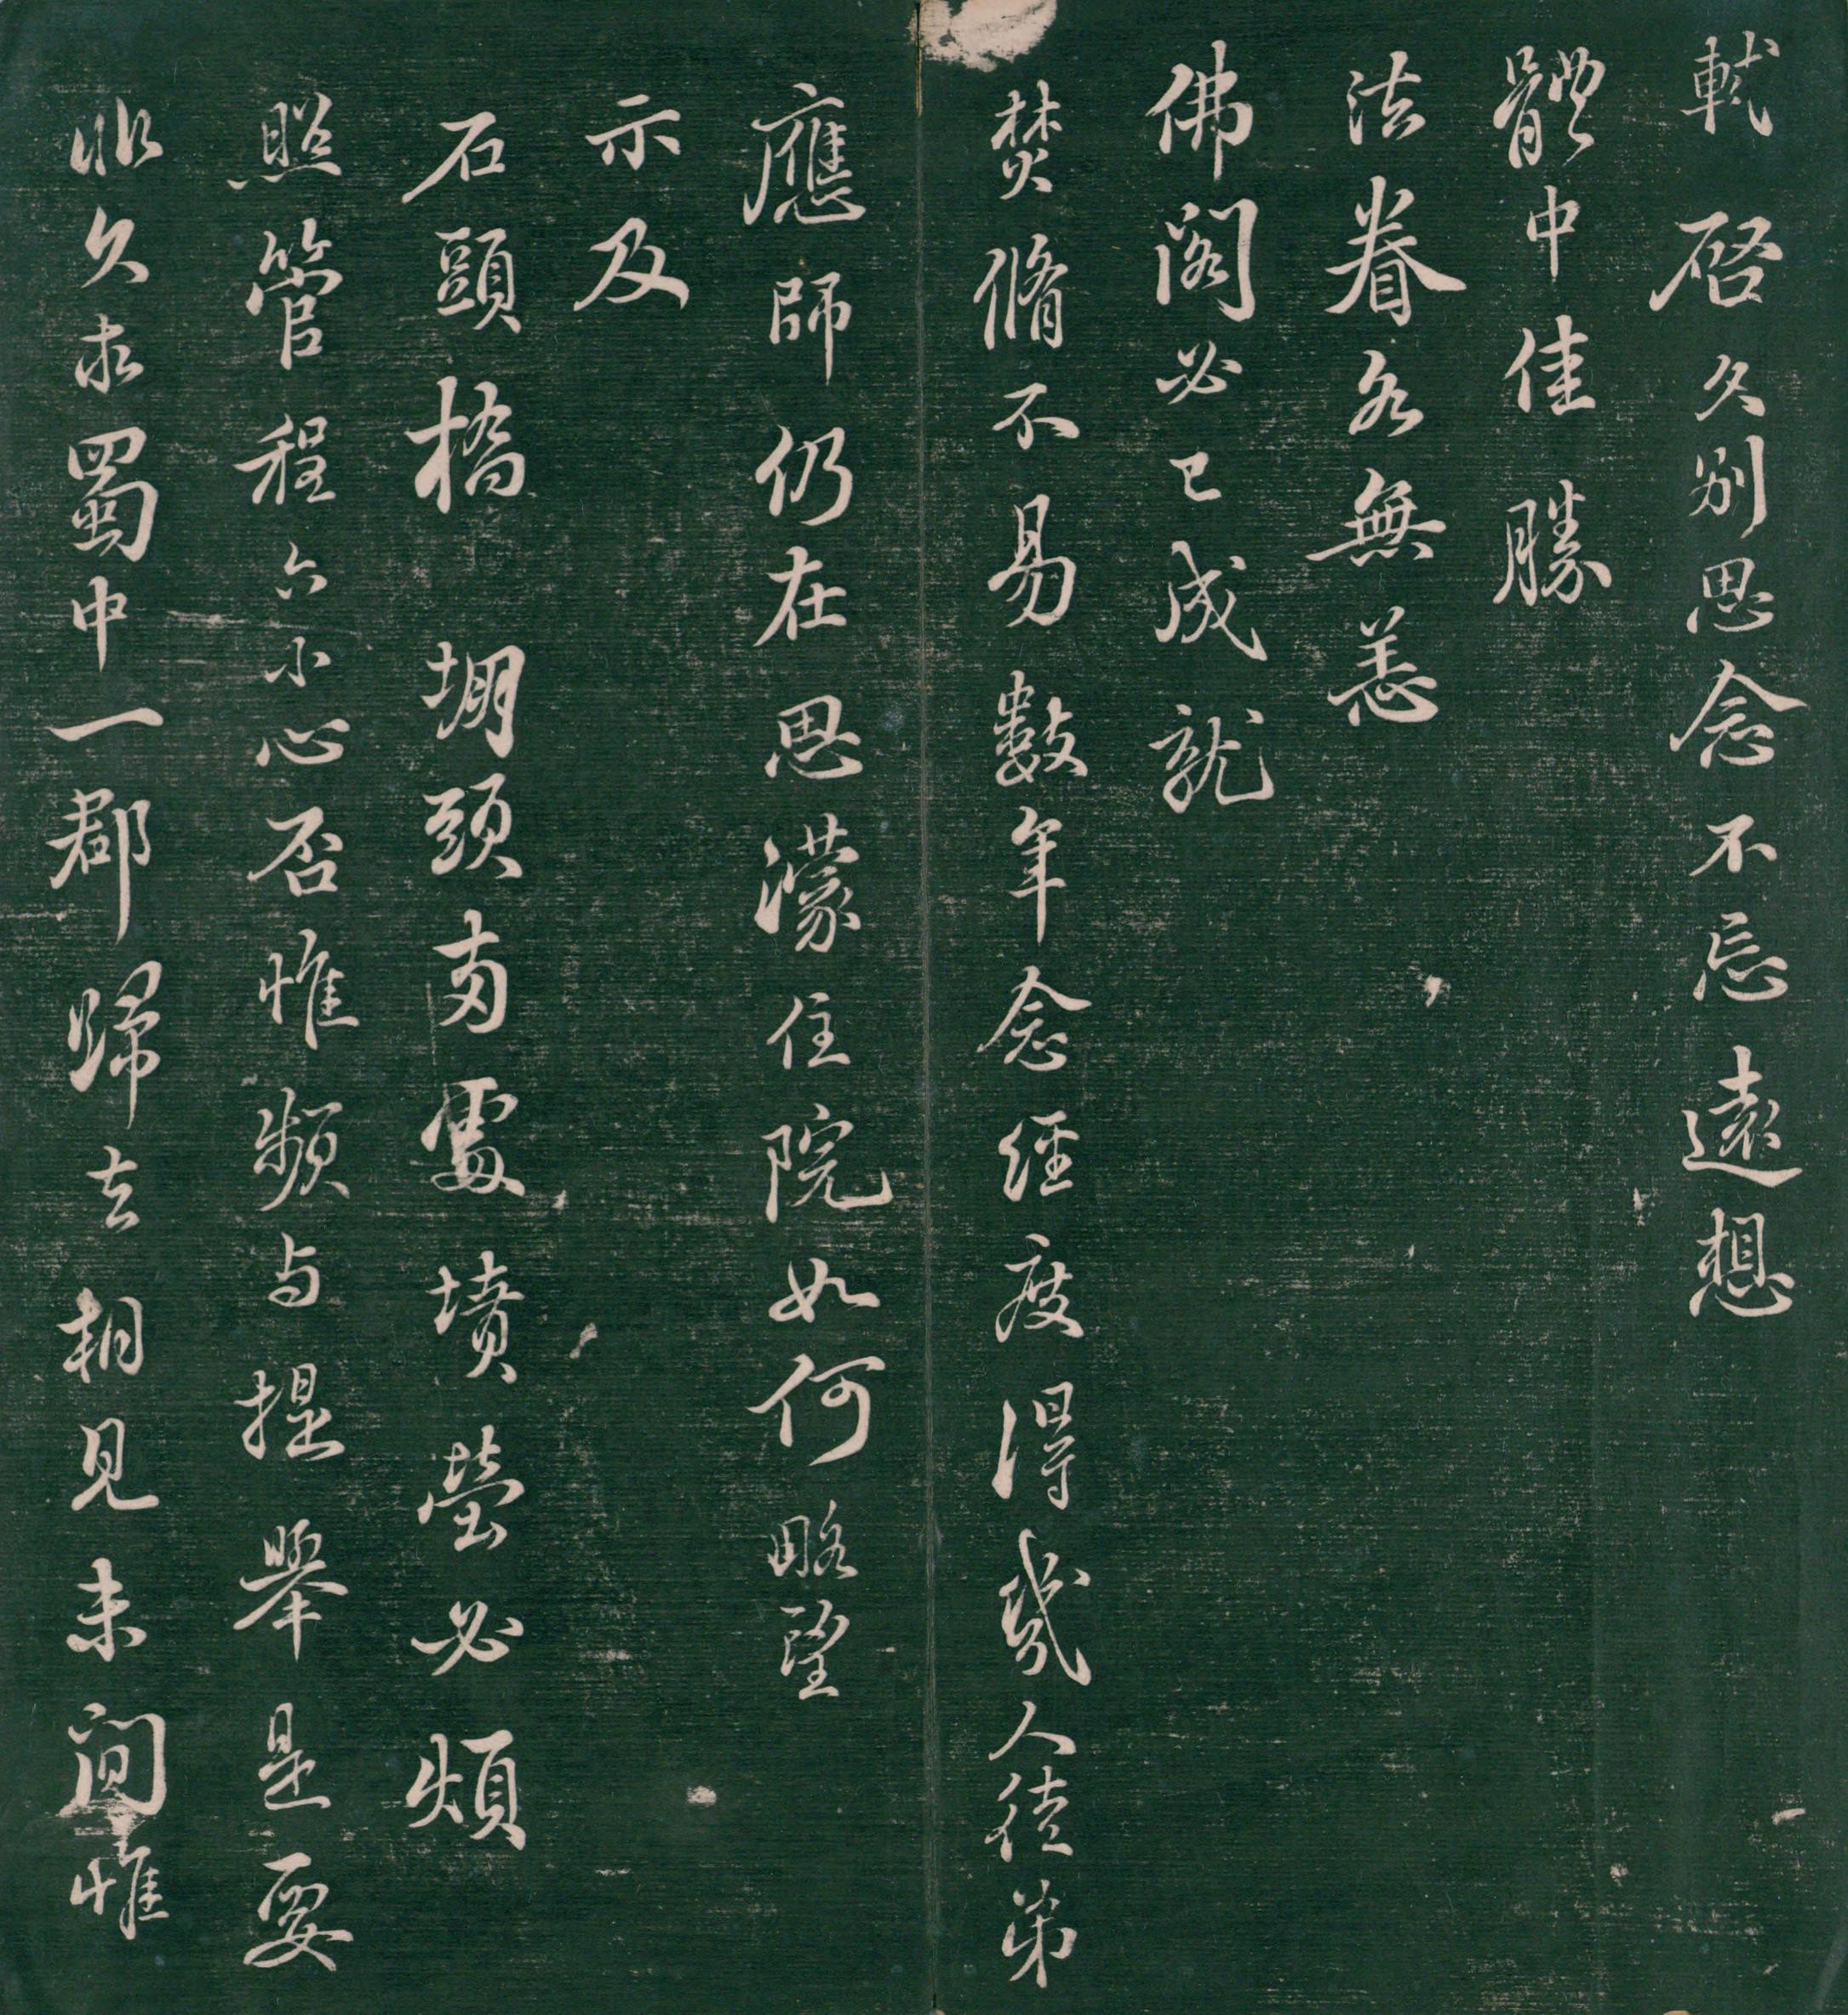 軾啓久別思念不忘遠想
體中佳勝
法眷各無恙
佛閣必已成就
焚脩不易數年念經度得幾人徒弟
應師仍在思濛住院如何略望
示及
石頭橋堋頭兩處墳塋必煩
照管程六小心否惟頻与提舉是要
非久求蜀中一郡歸去相見未間惟